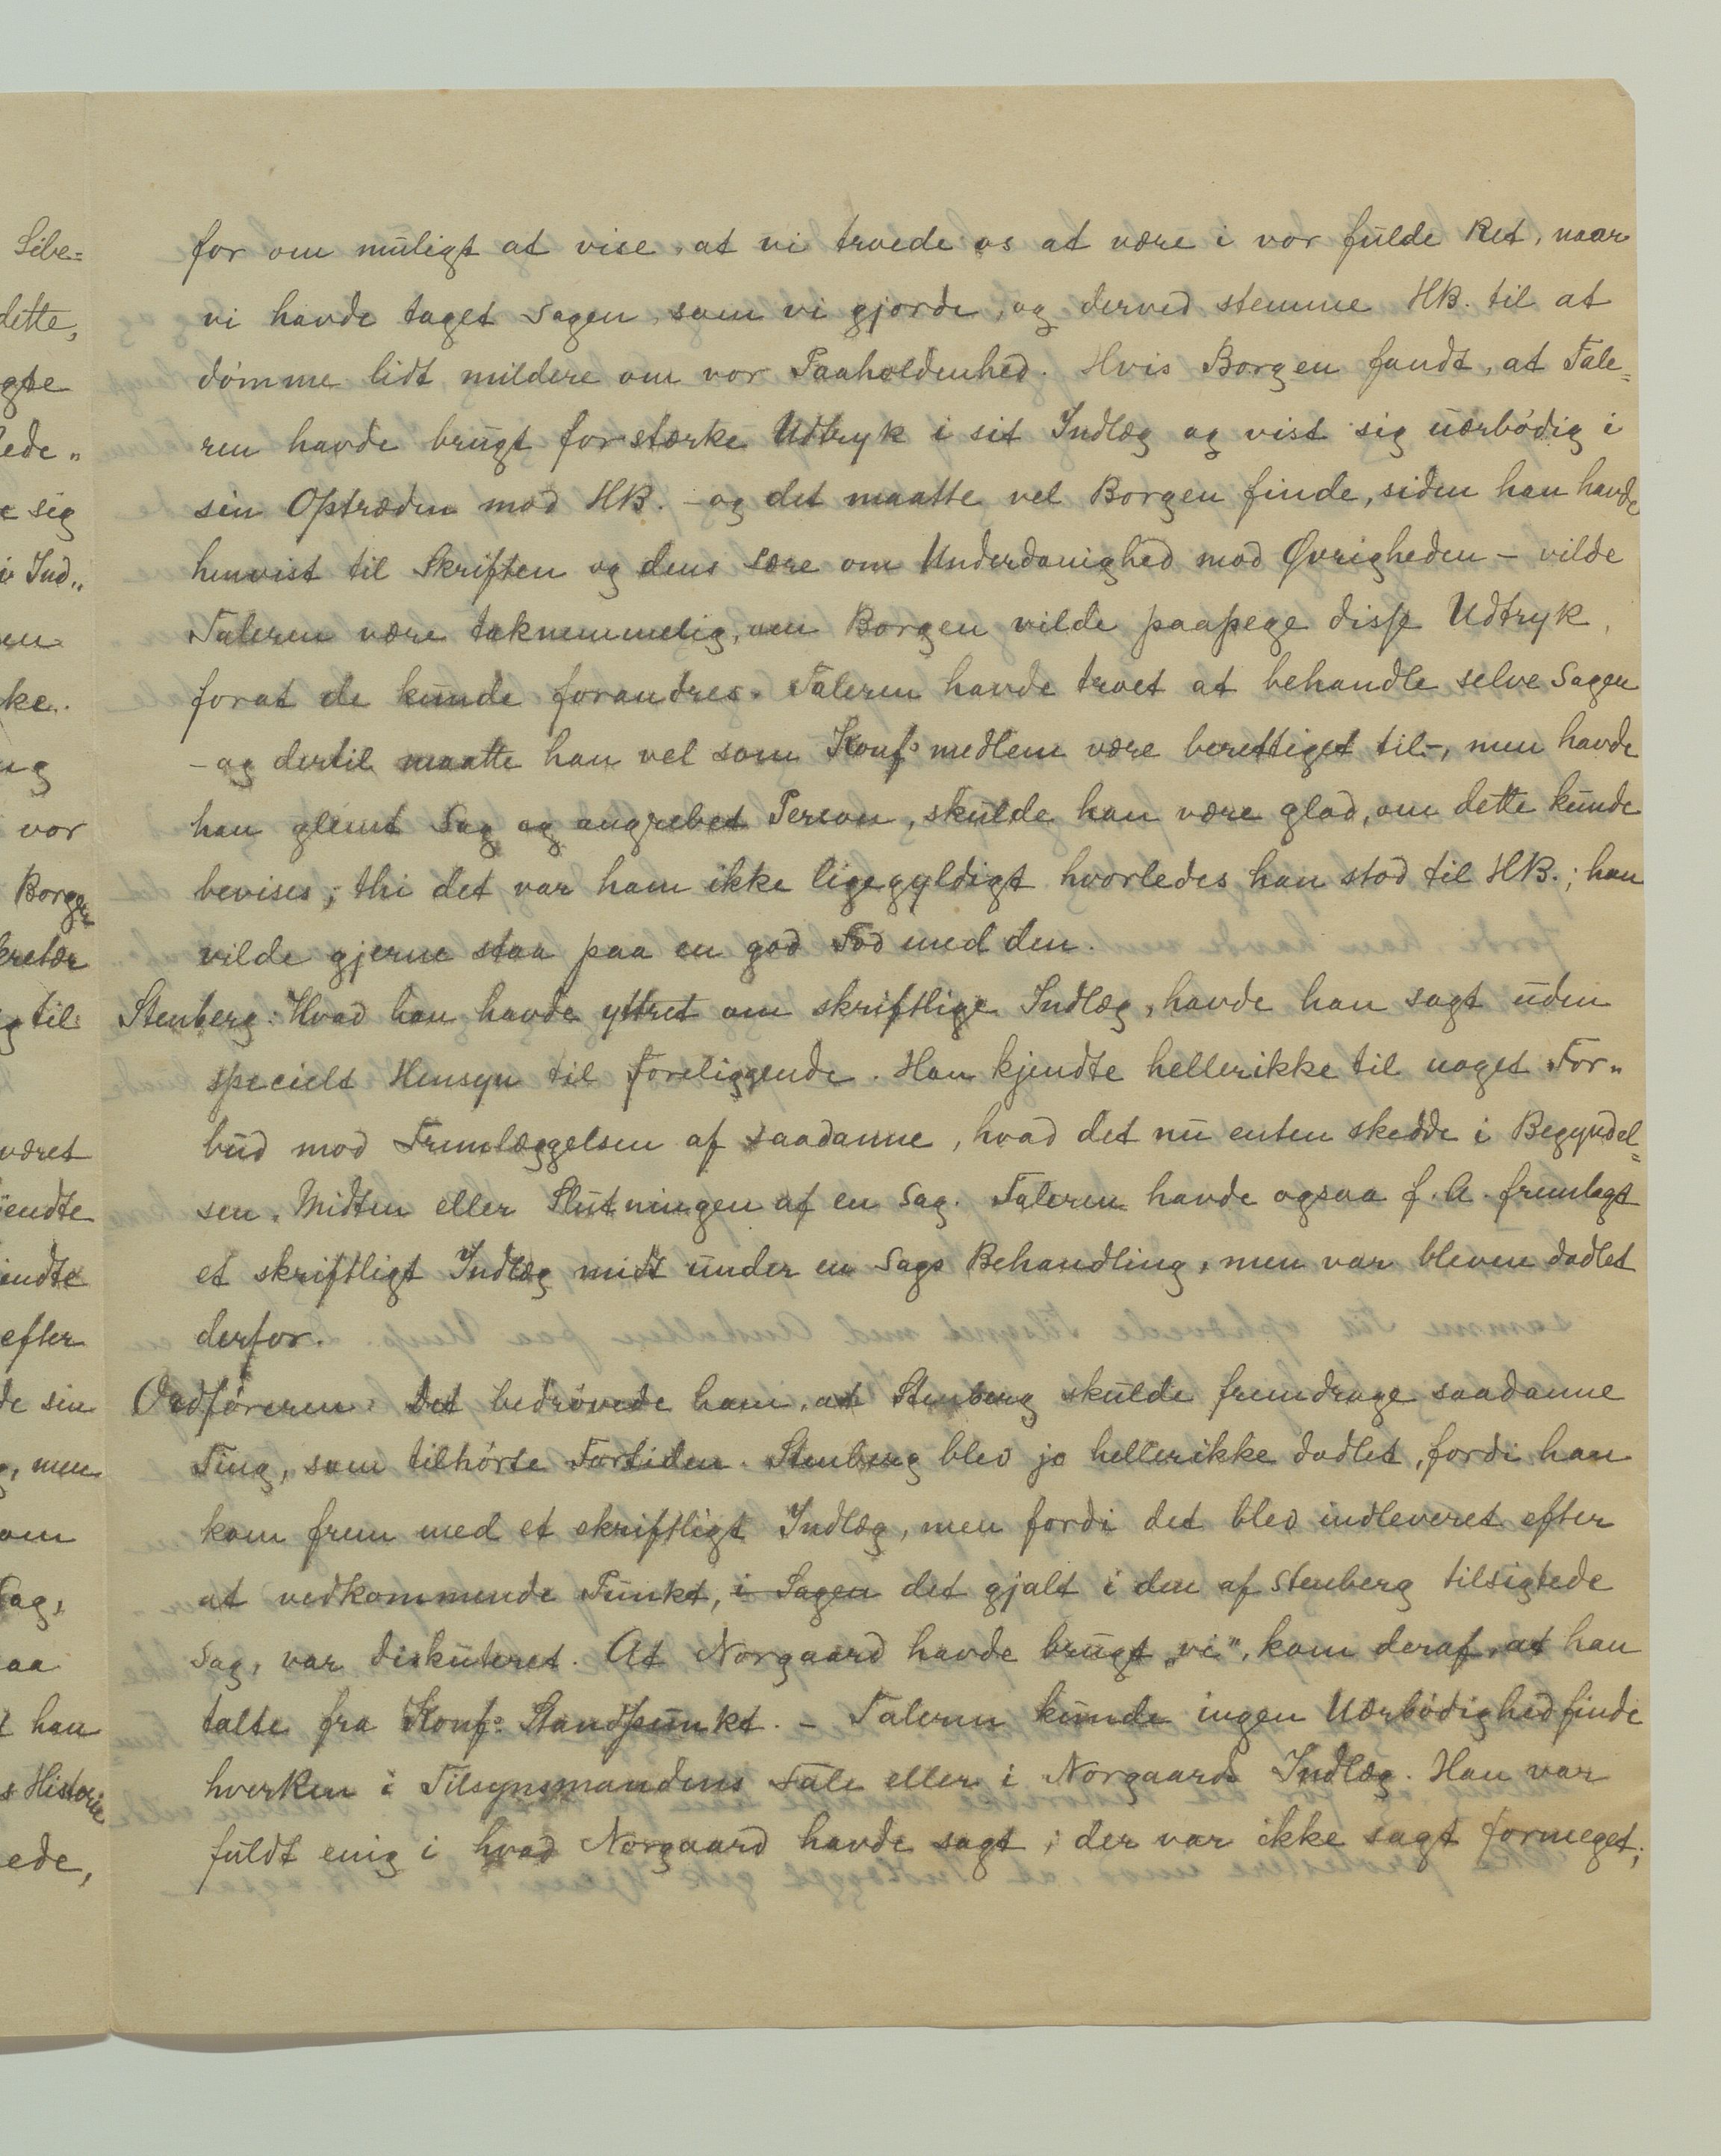 Sibe=
dette,
gte
ede„
e sig
i Ind„
en
ke.
ng
vor
Borgen
kretær
g til
været
endte
endte
efter
de sin
, men
om
Sag,
aa
t han
s Historie
ede,
for om muligt at vise, at vi troede os at være i vor fulde Ret, naar
vi havde taget Sagen, som vi gjorde, og derved stemme HB. til at
dømme lidt mildere om vor Paaholdenhed. Hvis Borgen fandt, at Tale=
ren havde brugt for stærke Udtryk i sit Indlæg og vist sig uærbødig i
sin Optræden mod HB. – og det maatte vel Borgen finde, siden han havde
henvist til Skriften og dens Lære om Underdanighed mod Øvrigheden – vilde
Taleren være taknemmelig, om Borgen vilde paapege disse Udtryk,
forat de kunde forandres. Taleren havde troet at behandle selve Sagen
– og dertil maatte han vel som Konf: medlem være berettiget til –, men havde
han glemt Sag og angrebet Person, skulde han være glad, om dette kunde
bevises; thi det var ham ikke ligegyldigt hvorledes han stod til HB.; han
vilde gjerne staa paa en god Fod med den.
Stenberg: Hvad han havde yttret om skriftlige Indlæg, havde han sagt uden
specielt Hensyn til foreliggende. Han kjendte hellerikke til noget For„
bud mod Fremlæggelsen af saadanne, hvad det nu enten skedde i Begyndel=
sen, Midten eller Slutningen af en Sag. Taleren havde ogsaa f. A. fremlagt
et skriftligt Indlæg midt under en Sags Behandling, men var bleven dadlet
derfor.
Ordføreren: Det bedrøvede ham, at Stenberg skulde fremdrage saadanne
Ting, som tilhørte Fortiden. Stenberg blev jo hellerikke dadlet, fordi han
kom frem med et skriftligt Indlæg, men fordi det blev indleveret efter
at vedkommende Punkt, i Sagen det gjalt i den af Stenberg tilsigtede
Sag, var diskuteret. At Norgaard havde brugt „vi", kom deraf, at han
talte fra Konf: Standpunkt. – Taleren kunde ingen Uærbødighed finde
hverken i Tilsynsmandens Tale eller i Norgaards Indlæg. Han var
fuldt enig i hvad Norgaard havde sagt; der var ikke sagt formeget;